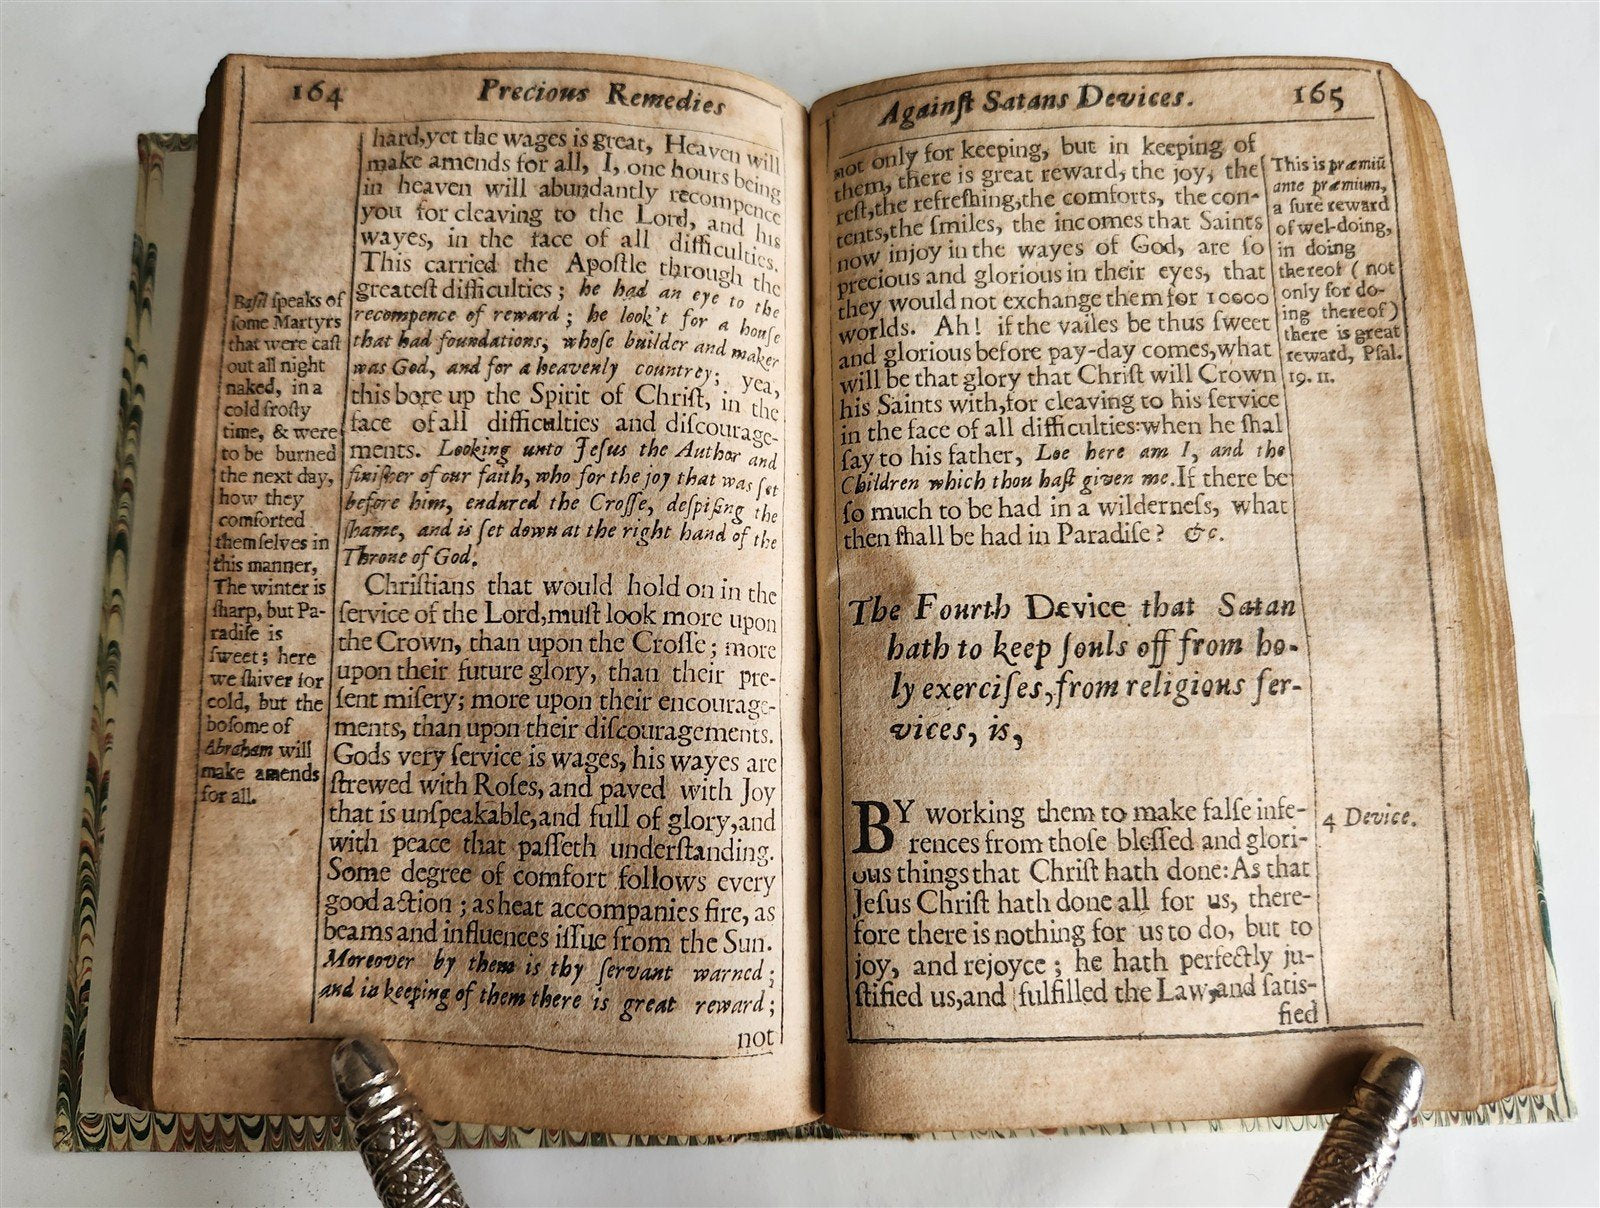 164
Precious Remedies
hard, yet the wages is great, Heaven will
make amends for all, I, one hours being
in heaven will abundantly recompence
you for cleaving to the Lord, and his
wayes, in the face of all difficulties.
This carried the Apoſtle through the
greateſt difficulties; he had an eye to the
recompence of reward; he look't for a houſe
that had foundations, whoſe builder and maker
was God, and for a heavenly countrey; yea,
this bore up the Spirit of Chriſt, in the
face of all difficulties and diſcourage-
ments. Looking unto Jeſus the Author and
finiſher of our faith, who for the joy that was ſet
before him, endured the Croſſe, deſpiſing the
ſhame, and is ſet down at the right hand of the
Throne of God.
Chriſtians that would hold on in the
ſervice of the Lord, muſt look more upon
the Crown, than upon the Croſſe; more
upon their future glory, than their pre-
ſent miſery; more upon their encourage-
ments, than upon their diſcouragements.
Gods very ſervice is wages, his wayes are
ſtrewed with Roſes, and paved with Joy
that is unſpeakable, and full of glory, and
with peace that paſſeth underſtanding.
Some degree of comfort follows every
good action; as heat accompanies fire, as
beams and influences iſſue from the Sun.
Moreover by them is thy ſervant warned;
and in keeping of them there is great reward;
not
Baſil ſpeaks of
ſome Martyrs
that were caſt
out all night
naked, in a
cold froſty
time, & were
to be burned
the next day,
how they
comforted
themſelves in
this manner,
The winter is
ſharp, but Pa-
radiſe is
ſweet; here
we ſhiver for
cold, but the
boſome of
Abraham will
make amends
for all.
Againſt Satans Devices.
165
not only for keeping, but in keeping of
them, there is great reward, the joy, the
reſt, the refreſhing, the comforts, the con-
tents, the ſmiles, the incomes that Saints
now injoy in the wayes of God, are ſo
precious and glorious in their eyes, that
they would not exchange them for 10000
worlds. Ah! if the vailes be thus ſweet
and glorious before pay-day comes, what
will be that glory that Chriſt will Crown
his Saints with, for cleaving to his ſervice
in the face of all difficulties: when he ſhal
ſay to his father, Loe here am I, and the
Children which thou haſt given me. If there be
ſo much to be had in a wilderneſs, what
then ſhall be had in Paradiſe? &c.
This is præmiū
ante præmium,
a ſure reward
of wel-doing,
in doing
thereof (not
only for do-
ing thereof)
there is great
reward, Pſal.
19. 11.
The Fourth Device that Satan
hath to keep ſouls off from ho-
ly exerciſes, from religious ſer-
vices, is,
BY working them to make falſe infe-
rences from thoſe bleſſed and glori-
ous things that Chriſt hath done: As that
Jeſus Chriſt hath done all for us, there-
fore there is nothing for us to do, but to
joy, and rejoyce; he hath perfectly ju-
ſtified us, and fulfilled the Law, and ſatis-
fied
4 Device.